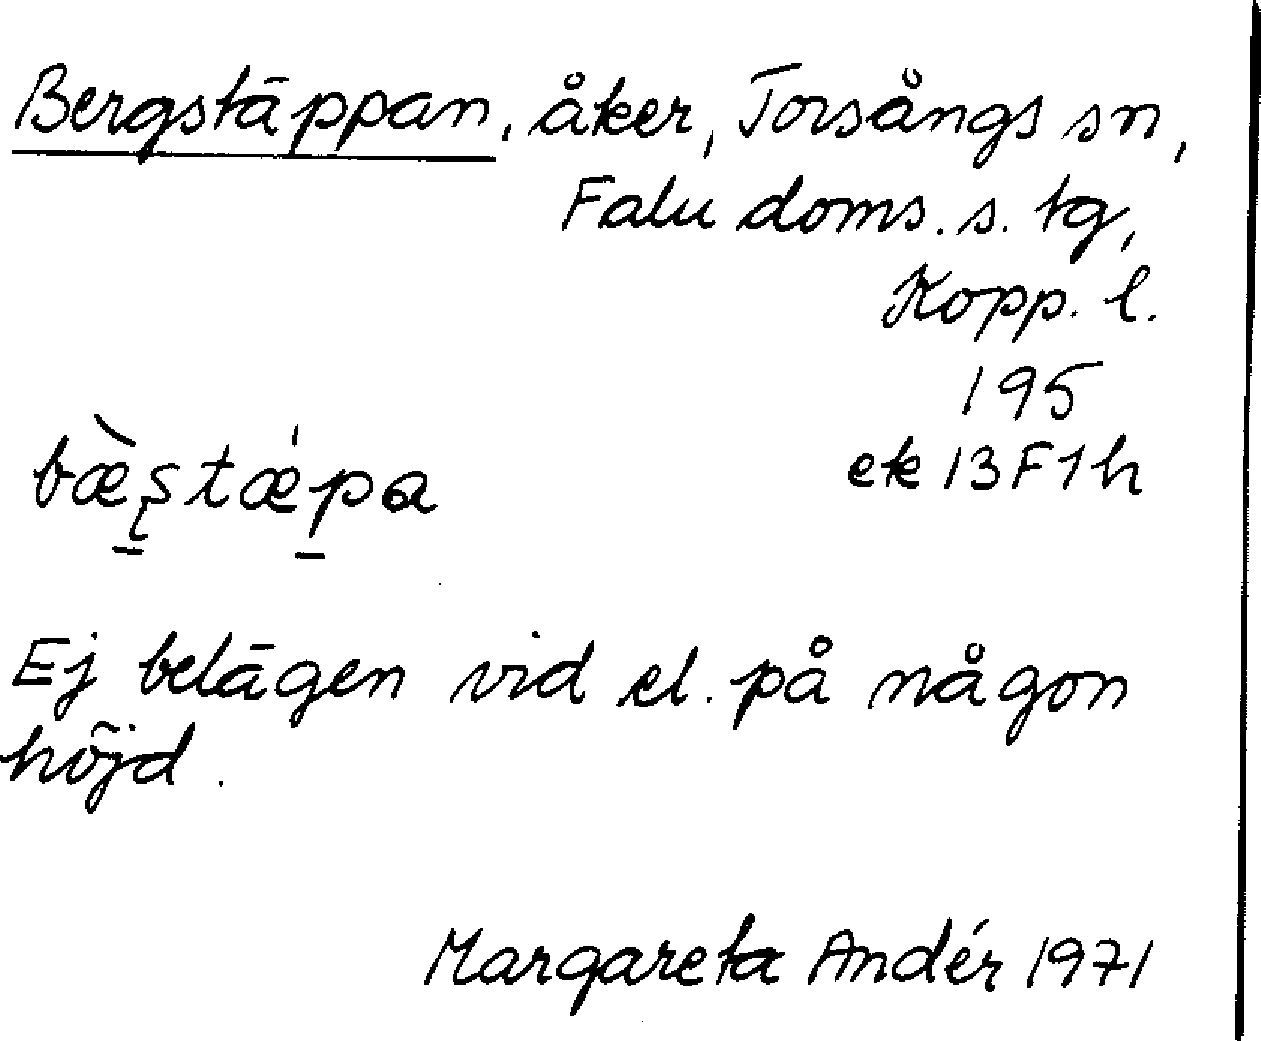 Bergstäppan, åker, Torsångs sn,
Falu doms. s. tg,
Kopp. l.
195
bæ̀ʂtǽpa
ek 13F1h
Ej belägen vid el. på någon
höjd.
Margareta Andér 1971